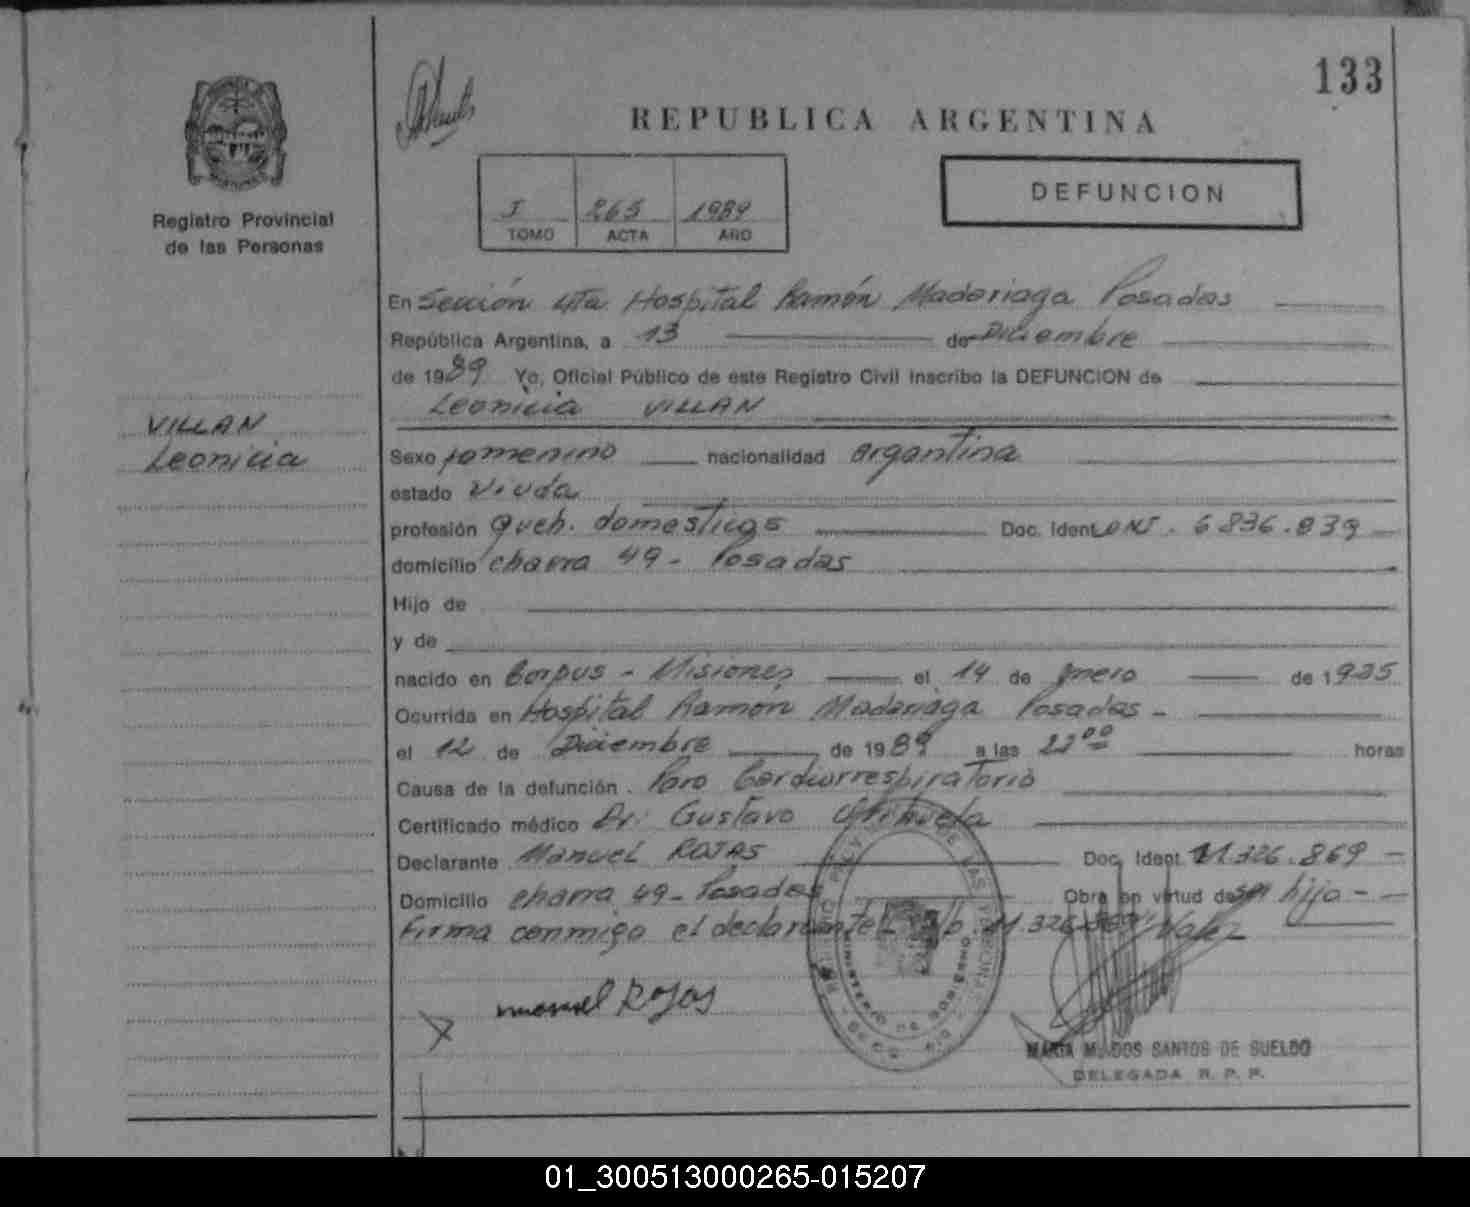 133
REPUBLICA ARGENTINA
Registro Provincial
de las Personas
DEFUNCION
I 265 1989
TOMO ACTA AÑO
En Sección 4ta Hospital Ramón Madariaga Posadas
República Argentina, a 13 de Diciembre
de 1989 Yo, Oficial Público de este Registro Civil inscribo la DEFUNCION de
Leonicia VILLAN
VILLAN
Leonicia
Sexo femenino nacionalidad argentina
estado Viuda
profesión queh. domesticos Doc. Ident. DNI. 6836.839
domicilio charra 49 - Posadas
Hijo de
y de
nacido en Corpus - Misiones el 14 de Enero de 1935
Ocurrida en Hospital Ramón Madariaga Posadas -
el 12 de Diciembre de 1989 a las 22 00 horas
Causa de la defunción. Paro Cardiorrespiratorio
Certificado médico Dr. Gustavo
Declarante Manuel ROJAS Doc. Ident. 11.326.869 -
Domicilio charra 49 - Posadas Obra en virtud de ser hijo -
Firma conmigo el declarante 11.326.869 Vale
manuel Rojas
MINISTERIO DE GOBIERNO
MARIA M. DOS SANTOS DE SUELDO
DELEGADA R. P. P.
01_300513000265-015207